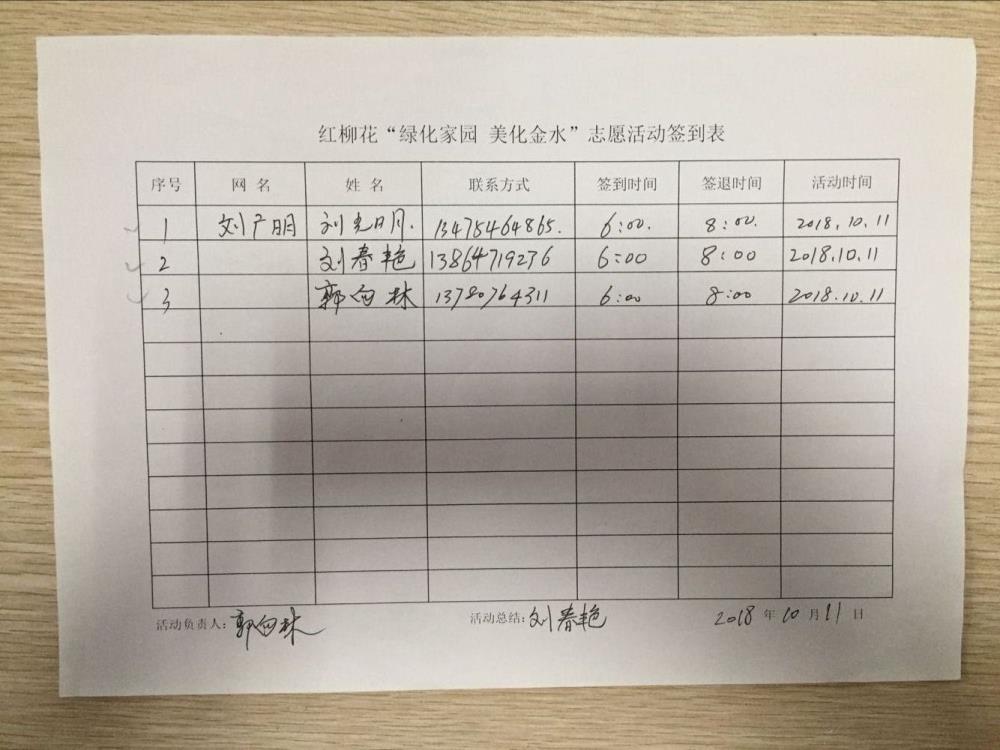 红柳花“绿化家园 美化金水”志愿活动签到表
序号 网 名 姓 名 联系方式 签到时间 签退时间 活动时间
1 刘广明 刘光明. 13475464865. 6:00. 8:00. 2018.10.11
2 刘春艳 13864719276 6:00 8:00 2018.10.11
3 郭向林 13780764311 6:00 8:00 2018.10.11
活动负责人: 郭向林 活动总结: 刘春艳 2018年10月11日